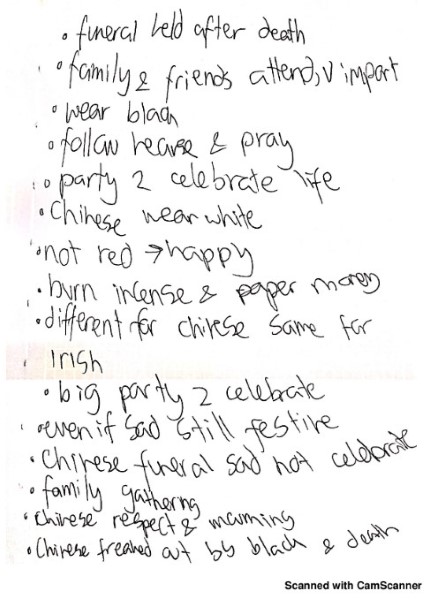 • funeral held after death
• family & friends attend, v import
• wear black
• follow hearse & pray
• party 2 celebrate life
• Chinese wear white
• not red → happy
• burn incense & paper money
• different for chinese same for
Irish
• big party 2 celebrate
• even if sad still festive
• Chinese funeral sad not celebrate
• family gathering
• Chinese respect & mourning
• Chinese freaked out by black & death
Scanned with CamScanner